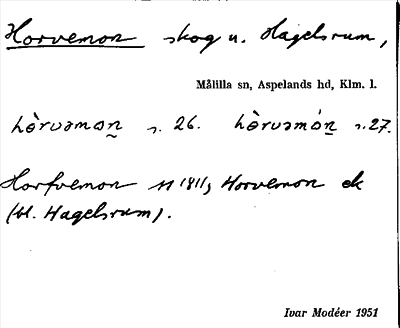 Horvemon skog u. Hagelsrum,
Målilla sn, Aspelands hd, Klm. l.
hòrvəmon̲ s. 26. hòrvəmón̲ s. 27.
Horfvemon 1811, Horvemon ek
(bl. Hagelsrum).
Ivar Modéer 1951